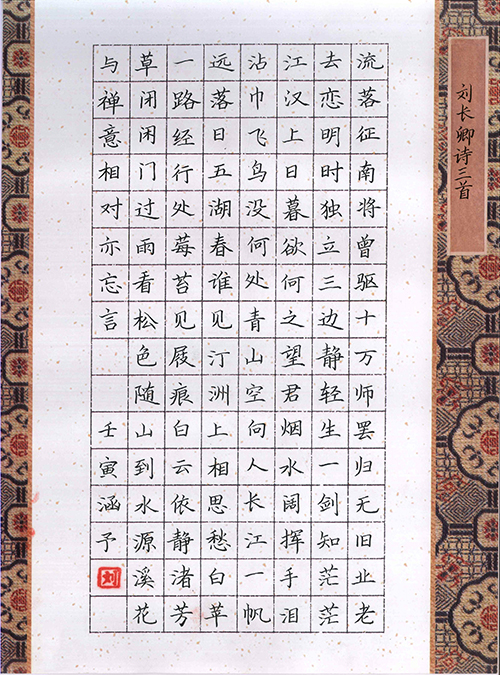 刘长卿诗三首
流落征南将曾驱十万师罢归无旧业老
去恋明时独立三边静轻生一剑知茫茫
江汉上日暮欲何之望君烟水阔挥手泪
沾巾飞鸟没何处青山空向人长江一帆
远落日五湖春谁见汀洲上相思愁白苹
一路经行处莓苔见屐痕白云依静渚芳
草闭闲门过雨看松色随山到水源溪花
与禅意相对亦忘言 壬寅涵予 刘